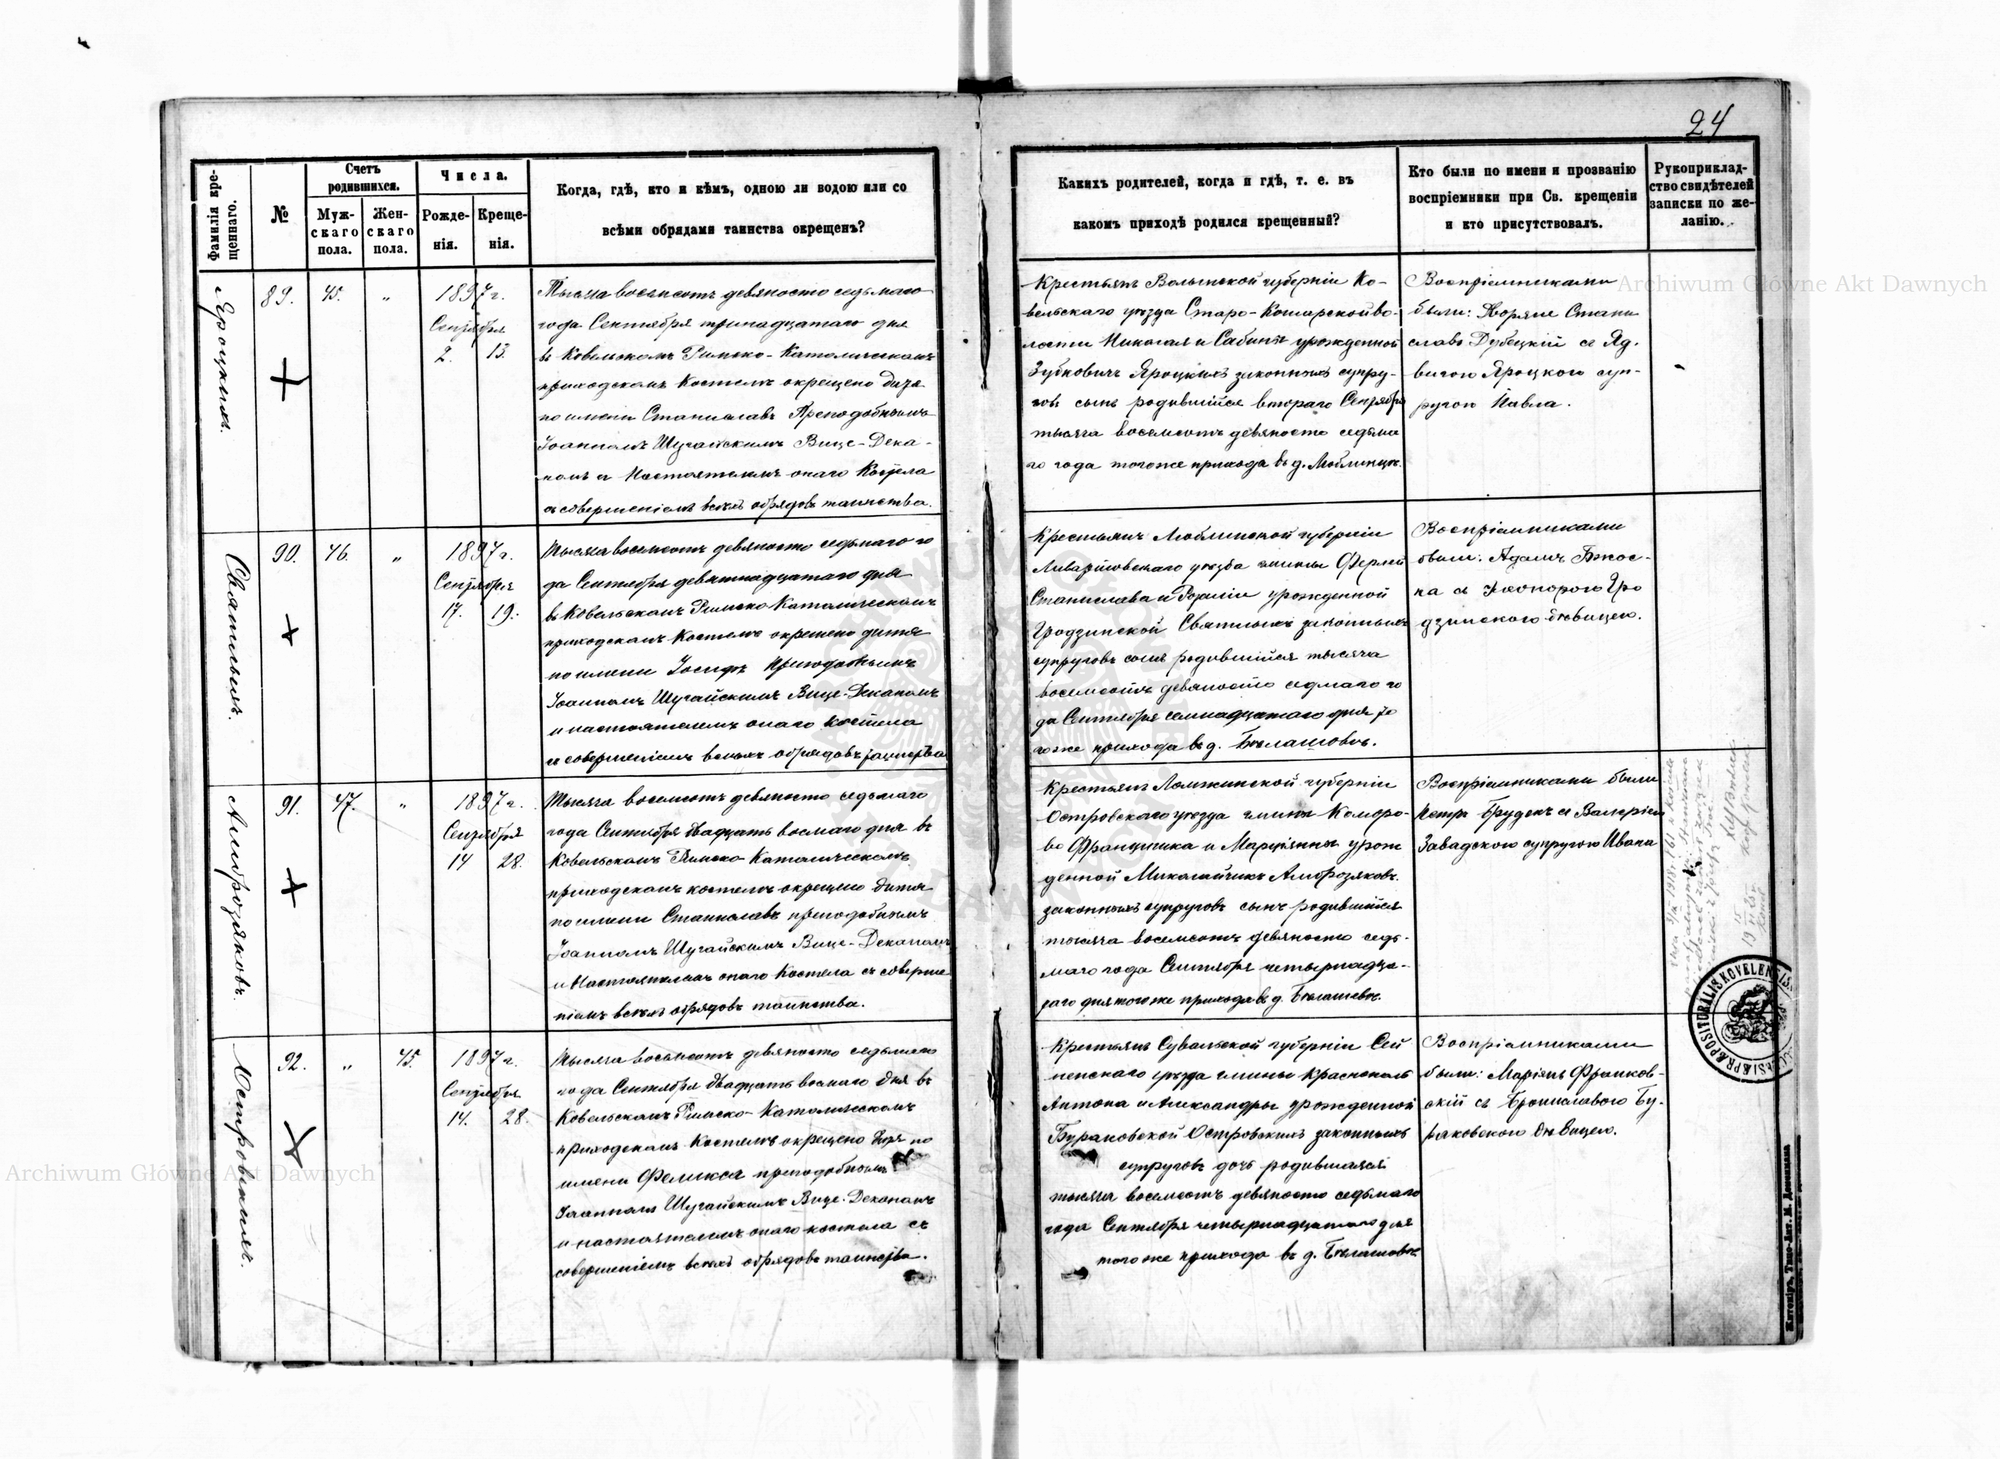 24
Фамилія кре-
щеннаго.
№
Счетъ
родившихся.
Муж-
скаго
пола.
Жен-
скаго
пола.
Числа.
Рожде-
нія.
Креще-
нія.
Когда, гдѣ, кто и кѣмъ, одною ли водою или со
всѣми обрядами таинства окрещенъ?
Какихъ родителей, когда и гдѣ, т. е. въ
какомъ приходѣ родился крещенный?
Кто были по имени и прозванію
воспріемники при Св. крещеніи
и кто присутствовалъ.
Рукоприклад-
ство свидѣтелей
записки по же-
ланію.
Яроцкихъ.
89.
45.
„
1897 г.
Сентября
2. 13.
Тысяча восемсотъ девяносто седьмаго
года Сентября тринадцатаго дня
въ Ковельскомъ Римско-Католическомъ
приходскомъ Костелѣ окрещено дитя
по имени Станиславъ Преподобнымъ
Іоанномъ Шугайскимъ Вице-Дека-
номъ и Настоятелемъ онаго Костела
съ совершеніемъ всѣхъ обрядовъ таинства.
Крестьянъ Волынской губерніи Ко-
вельскаго уѣзда Старо-Кошарской во-
лости Николая и Сабины урожденной
Зубковичъ Яроцкихъ законныхъ супру-
говъ сынъ родившійся втораго Сентября
тысяча восемсотъ девяносто седьма
го года того же прихода въ д. Люблинцѣ.
Воспріемниками
были: Дворяне Стани
славъ Дубецкій съ Яд-
вигою Яроцкого суп-
ругою Павла.
Святныхъ.
90.
46.
„
1897 г.
Сентября
17. 19.
Тысяча восемсотъ девяносто седьмаго го
да Сентября девятнадцатаго дня
въ Ковельскомъ Римско Католическомъ
приходскомъ Костелѣ окрещено дитя
по имени Іосифъ Преподобнымъ
Іоанномъ Шугайскимъ Вице-Деканомъ
и настоятелемъ онаго костела
съ совершеніемъ всѣхъ обрядовъ таинства
Крестьянъ Люблинской губерніи
уѣзда гмины
Станислава и Розаліи урожденной
Гродзинской законныхъ
супруговъ сынъ родившійся тысяча
восемсотъ девяносто седмаго го
да Сентября семнадцатаго дня то
го же прихода въ д. Бѣлашовѣ.
Воспріемниками
были: Адамъ Бжос-
ка съ Гро
дзинского дѣвицею.
Амброзяковъ.
91.
47.
„
1897 г.
Сентября
14 28.
Тысяча восемсотъ девяносто седьмаго
года Сентября двадцать восмаго дня въ
Ковельскомъ Римско Католическомъ
приходскомъ костелѣ окрещено дитя
по имени Станиславъ преподобнымъ
Іоанномъ Шугайскимъ Вице-Деканомъ
и Настоятелемъ онаго Костела съ соверше
ніемъ всѣхъ обрядовъ таинства.
Крестьянъ Ломжинской губерніи
Островскаго уѣзда гмины Коморо-
во Францишка и Маріянны урож
денной Миколайчикъ Амброзяковъ
законныхъ супруговъ сынъ родившійся
тысяча восемсотъ девяносто седь-
маго года Сентября четырнадца-
таго дня того же прихода въ д. Бѣлашевѣ.
Воспріемниками были
Петръ Груденъ съ Валеріею
Завадского супругою Ивана
Островскихъ.
92.
„
45.
1897 г.
Сентября
14. 28.
Тысяча восемсотъ девяносто седьмаго
года Сентября двадцать восмаго дня въ
Ковельскомъ Римско-Католическомъ
приходскомъ Костелѣ окрещено дитя по
имени Феликса преподобнымъ
Іоанномъ Шугайскимъ Вице-Деканомъ
и настоятелемъ онаго костела съ
совершеніемъ всѣхъ обрядовъ таинства.
Крестьянъ Сувальской губерніи Сей
ненскаго уѣзда гмины Краснополь
Антона и Александры урожденной
Бурановской Островскихъ законныхъ
супруговъ дочь родившаяся
тысяча восемсотъ девяносто седьмаго
года Сентября четырнадцатаго дня
того же прихода въ д. Бѣлашовѣ
Воспріемниками
были: Маріянъ Франков-
скій съ Брониславого Бу-
раковского дѣвицею.
PRÆPOSITURALIS KOVELENSIS
Житоміръ, Типо-Лит. М. Дененмана
Archiwum Główne Akt Dawnych
Archiwum Główne Akt Dawnych